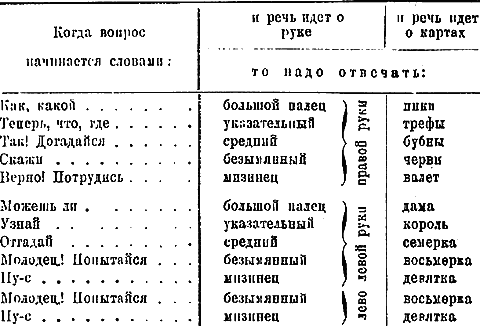 Когда вопрос начинается словами:
и речь идет о руке
и речь идет о картах
то надо отвечать:
Как, какой . . . . . . . большой палец пики
Теперь, что, где . . . . . указательный трефы
Так! Догадайся . . . . . средний бубны
Скажи . . . . . . . . . безымянный черви
Верно! Потрудись . . . . мизинец валет
правой руки
Можешь ли . . . . . . . большой палец дама
Узнай . . . . . . . . . указательный король
Отгадай . . . . . . . . средний семерка
Молодец! Попытайся . . . безымянный восьмерка
Ну-с . . . . . . . . . . мизинец девятка
левой руки
Молодец! Попытайся . . . безымянный восьмерка
Ну-с . . . . . . . . . . мизинец девятка
лево